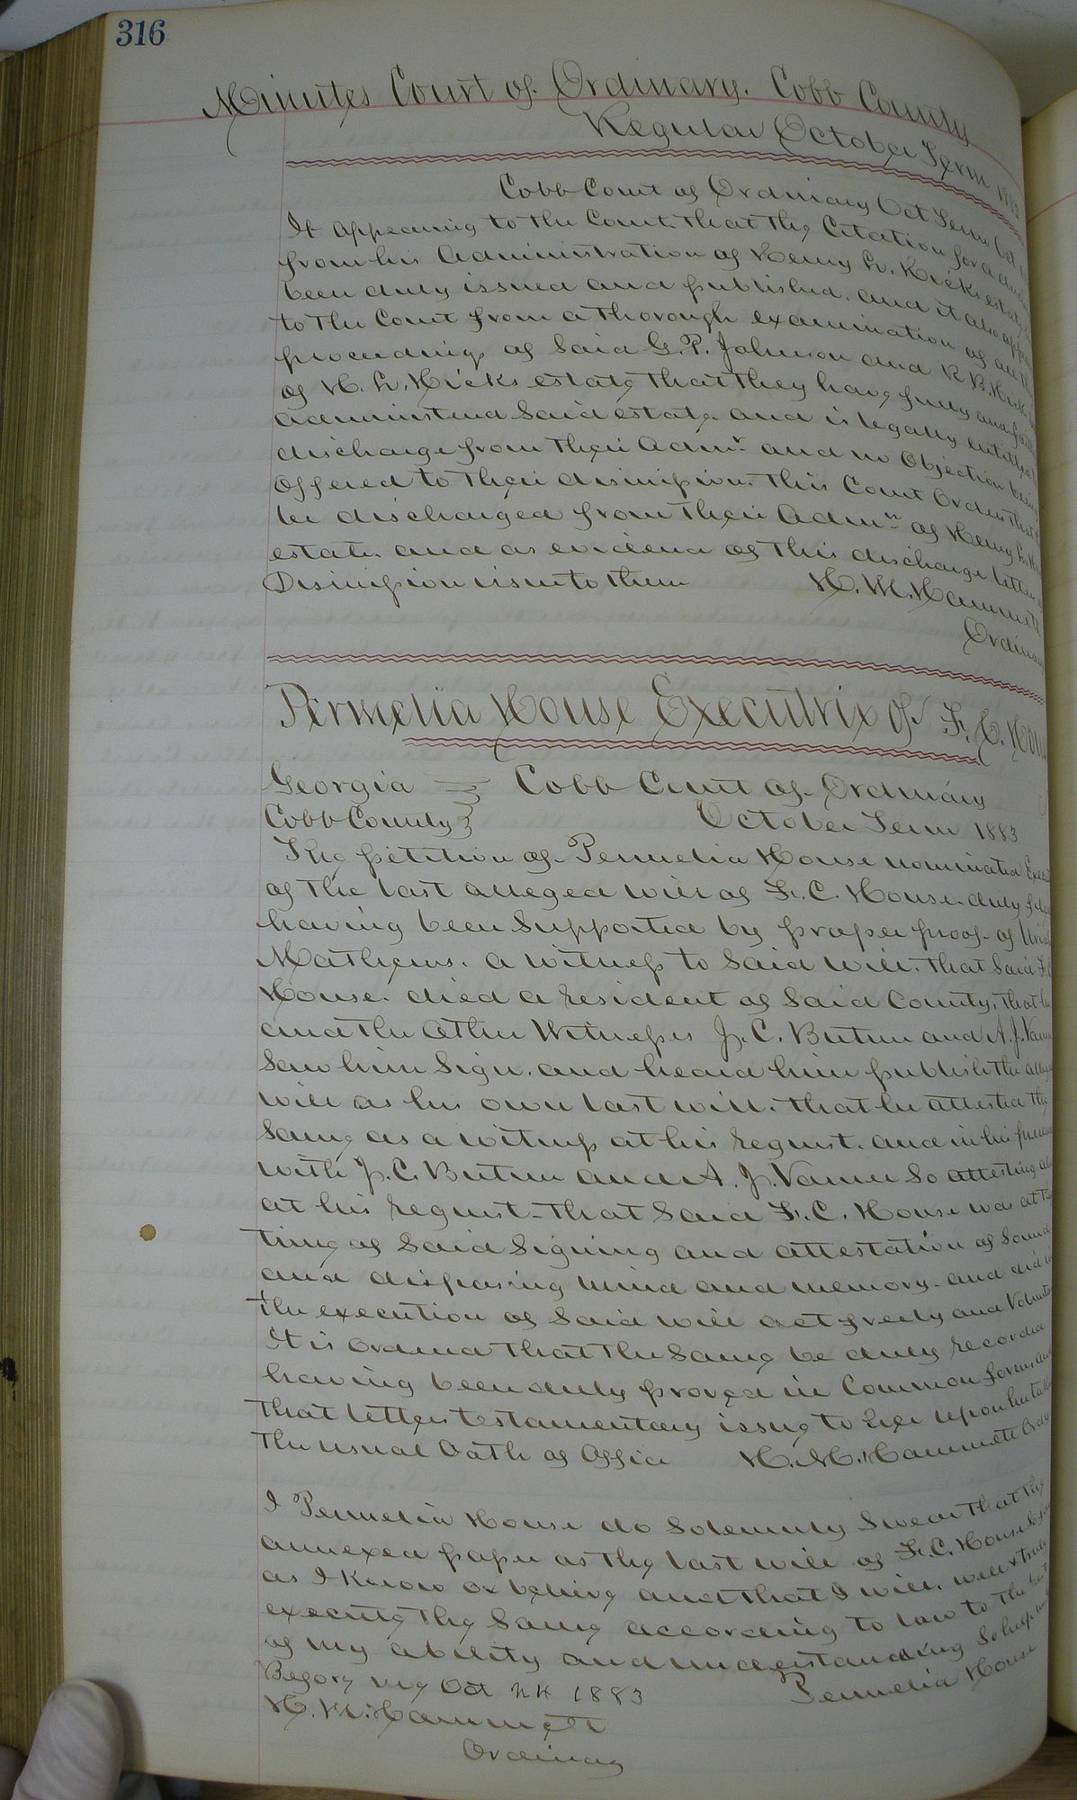 316
Minutes Court of Ordinary. Cobb County
Regular October Term
Cobb Court of Ordinary Oct Term
It appearing to the Court that the Citation for
from his Administration of Henry L. Hicks estate
been duly issued and published. and it also
to the Court from a thorough examination of all
proceedings of Said G. P. Johnson and R B. Hicks
of H. L. Hicks estate that they have fully and
administered Said estate and is legally entitled
discharge from their Admr. and no Objection being
Offered to their dismission. This Court Orders that
be discharged from their Admn. of Henry L.
estate. and as evidence of this discharge letters
Dismission issue to them H. M. Hammett
Ordinary
Permelia House Executrix of F. C. House
Georgia Cobb Court of Ordinary
Cobb County October Term 1883
The petition of Permelia House nominated
of the last alleged will of F. C. House. duly
having been Supported by proper proof of
Mathews. a witness to Said will. that Said
House. died a resident of Said County, that he
and the other Witnesses J. C. Butner and A. J.
Saw him Sign. and heard him publish the
will as his own last will. that he attested the
Same as a witness at his request. and in his
with J. C. Butner and A. J. So attesting
at his request. that Said F. C. House was at
time of Said Signing and attestation of Sound
and disposing mind and memory. and did
the execution of Said will act freely and
It is ordered that the Same be duly recorded
having been duly proved in Common form.
that letters testamentary issue to her upon her
the usual Oath of Office H. M. Hammett
I Permelia House do Solemnly Swear that the
annexed paper as the last will of F. C. House
as I know or believe and that I will. well &
execute the Same according to law to the
of my ability and understanding So help
Before me Oct 1883 Permelia House
H. M. Hammett
Ordinary